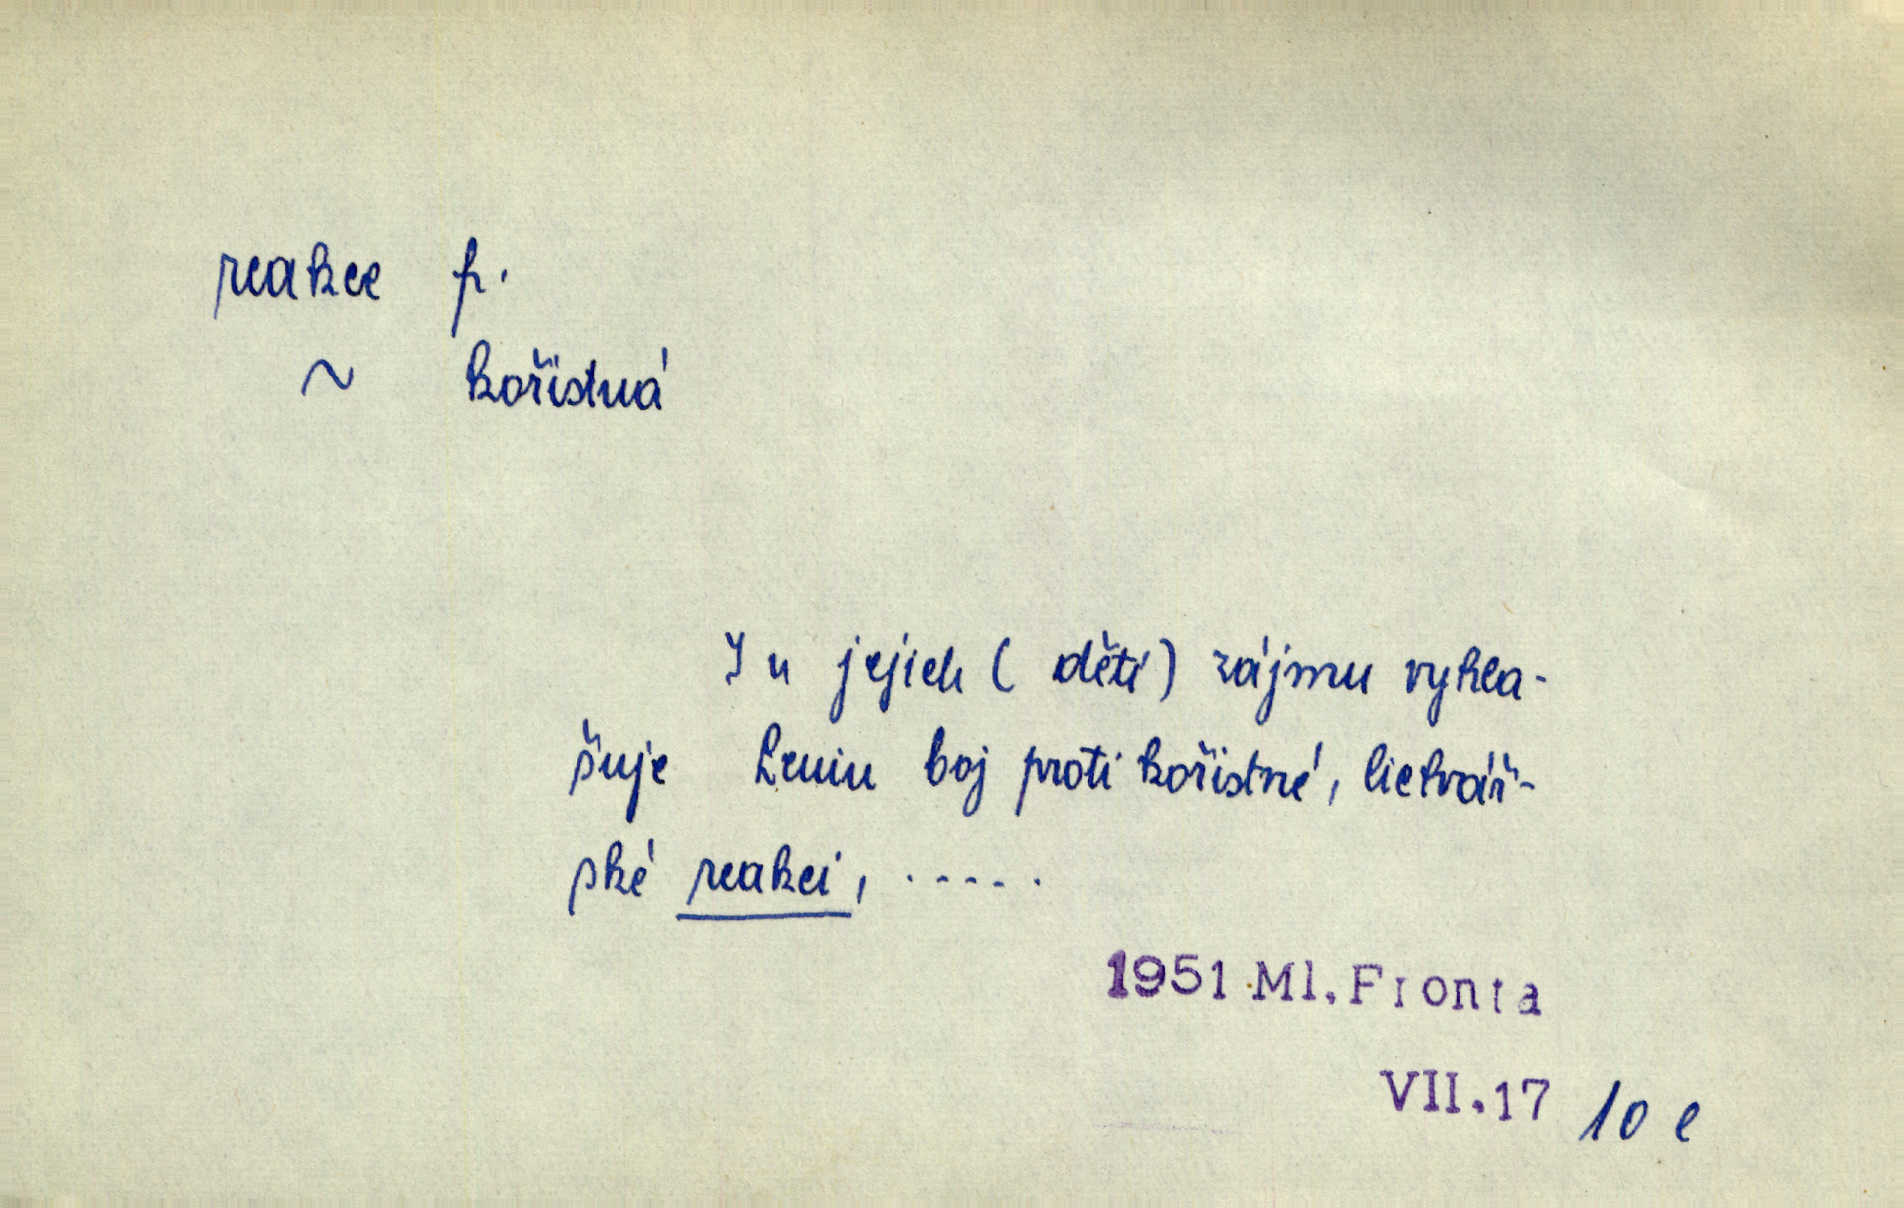 reakce f.
~ kořistná
I v jejich ( dětí ) zájmu vyhla-
šuje Lenin boj proti kořistné, lichvář-
ské reakci, ......
1951 Ml. Fronta
VII.17 10 e